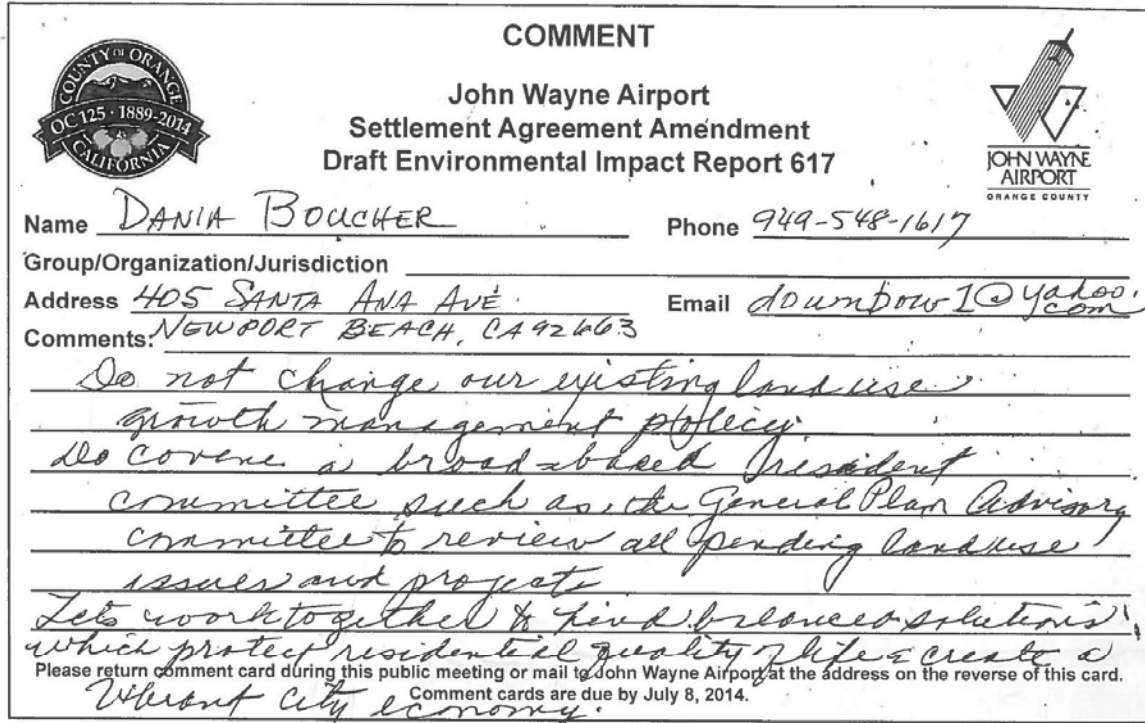 COMMENT
COUNTY OF ORANGE
OC 125 · 1889-2014
CALIFORNIA
John Wayne Airport
Settlement Agreement Amendment
Draft Environmental Impact Report 617
JOHN WAYNE
AIRPORT
ORANGE COUNTY
Name DANIA BOUCHER Phone 949-548-1617
Group/Organization/Jurisdiction
Address 405 SANTA ANA AVE. Email downbow1@yahoo.
com
Comments: NEWPORT BEACH, CA 92663
Do not change our existing land use
growth management policy.
Do covene a broad-based resident
committee such as the General Plan Advisory
committee to review all pending land use
issues and projects
Lets work together to find balanced solutions
which protect residential quality of life & create a
Please return comment card during this public meeting or mail to John Wayne Airport at the address on the reverse of this card.
Vibrant City economy.
Comment cards are due by July 8, 2014.